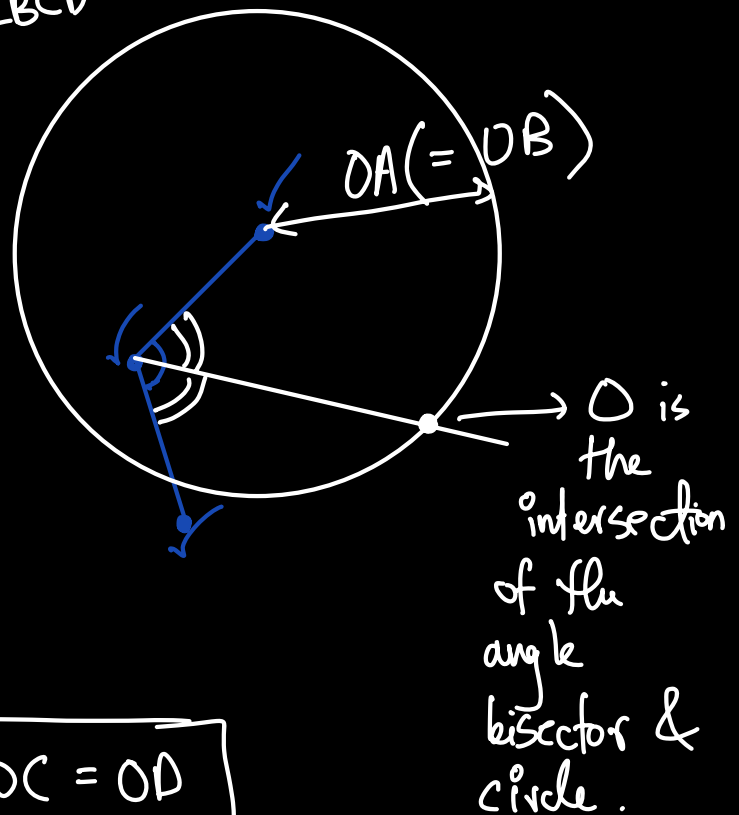 ∠BCD
OA(= OB)
O is
the
intersection
of the
angle
bisector &
circle.
OC = OD